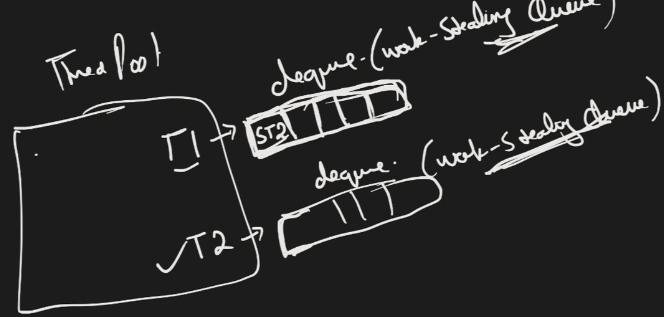 Thread Pool
deque. (work-Stealing Queue)
T1
ST2
deque. (work-Stealing Queue)
T2